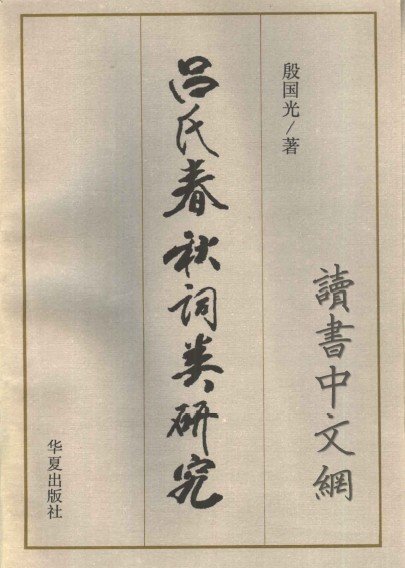 殷国光/著
讀書中文網
吕氏春秋词类研究
华夏出版社